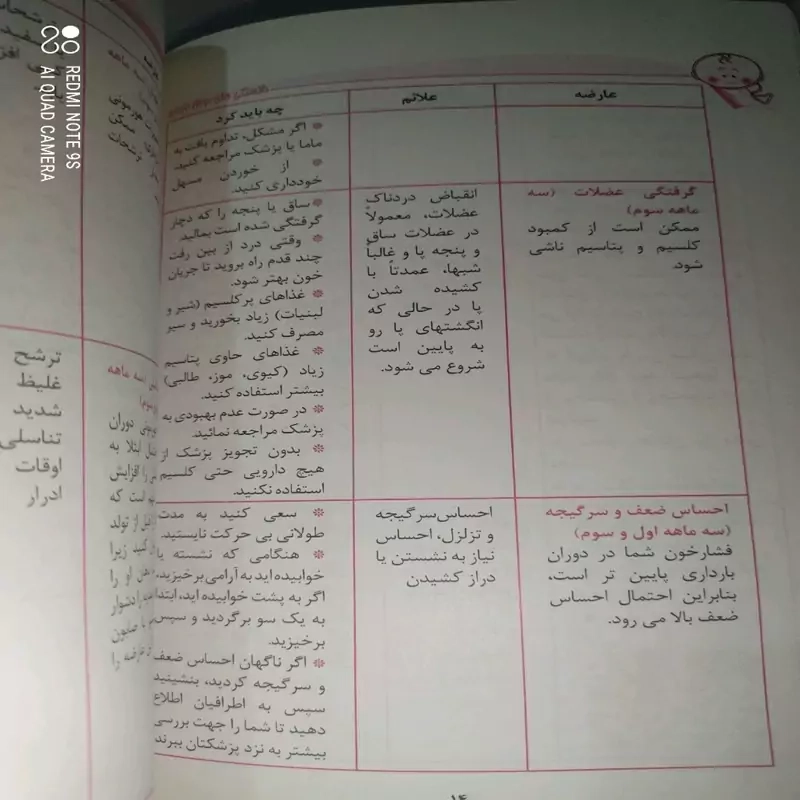 عارضه
علائم
چه باید کرد
❊ اگر مشکل، تداوم یافت به
ماما یا پزشک مراجعه کنید.
❊ از خوردن مسهل
خودداری کنید.
گرفتگی عضلات (سه
ماهه سوم)
ممکن است از کمبود
کلسیم و پتاسیم ناشی
شود.
انقباض دردناک
عضلات، معمولاً
در عضلات ساق
و پنجه پا و غالباً
شبها، عمدتاً با
کشیده شدن
پا در حالی که
انگشتهای پا رو
به پایین است
شروع می شود.
❊ ساق یا پنجه را که دچار
گرفتگی شده است بمالید.
❊ وقتی درد از بین رفت
چند قدم راه بروید تا جریان
خون بهتر شود.
❊ غذاهای پرکلسیم (شیر و
لبنیات) زیاد بخورید و سیر
مصرف کنید.
❊ غذاهای حاوی پتاسیم
زیاد (کیوی، موز، طالبی)
بیشتر استفاده کنید.
❊ در صورت عدم بهبودی به
پزشک مراجعه نمائید.
❊ بدون تجویز پزشک از
هیچ دارویی حتی کلسیم
استفاده نکنید.
احساس ضعف و سرگیجه
(سه ماهه اول و سوم)
فشارخون شما در دوران
بارداری پایین تر است،
بنابراین احتمال احساس
ضعف بالا می رود.
احساس سرگیجه
و تزلزل، احساس
نیاز به نشستن یا
دراز کشیدن
❊ سعی کنید به مدت
طولانی بی حرکت نایستید.
❊ هنگامی که نشسته یا
خوابیده اید به آرامی برخیزید،
اگر به پشت خوابیده اید، ابتدا
به یک سو برگردید و سپس
برخیزید.
❊ اگر ناگهان احساس ضعف
و سرگیجه کردید، بنشینید
سپس به اطرافیان اطلاع
دهید تا شما را جهت بررسی
بیشتر به نزد پزشکتان ببرند
۱۴
ترشح
غلیظ
شدید
تناسلی
اوقات
ادرار
REDMI NOTE 9S
AI QUAD CAMERA